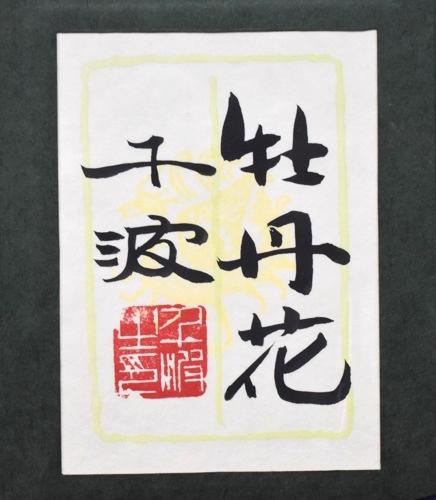 牡丹花
千波